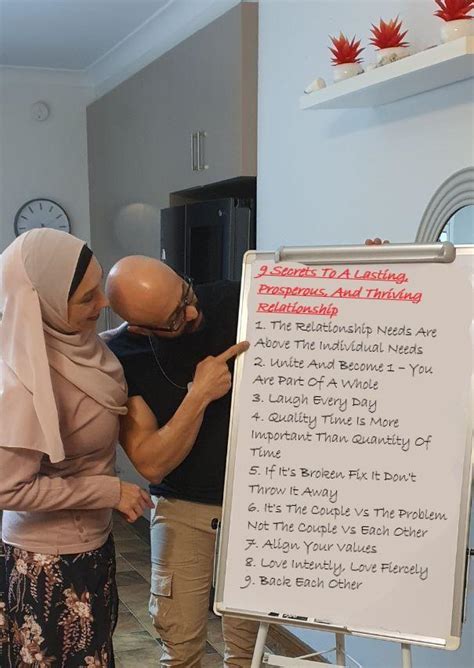 9 Secrets To A Lasting,
Prosperous, And Thriving
Relationship
1. The Relationship Needs Are
Above The Individual Needs
2. Unite And Become 1 – You
Are Part Of A Whole
3. Laugh Every Day
4. Quality Time Is More
Important Than Quantity Of
Time
5. If It's Broken Fix It Don't
Throw It Away
6. It's The Couple Vs The Problem
Not The Couple Vs Each Other
7. Align Your Values
8. Love Intently, Love Fiercely
9. Back Each Other